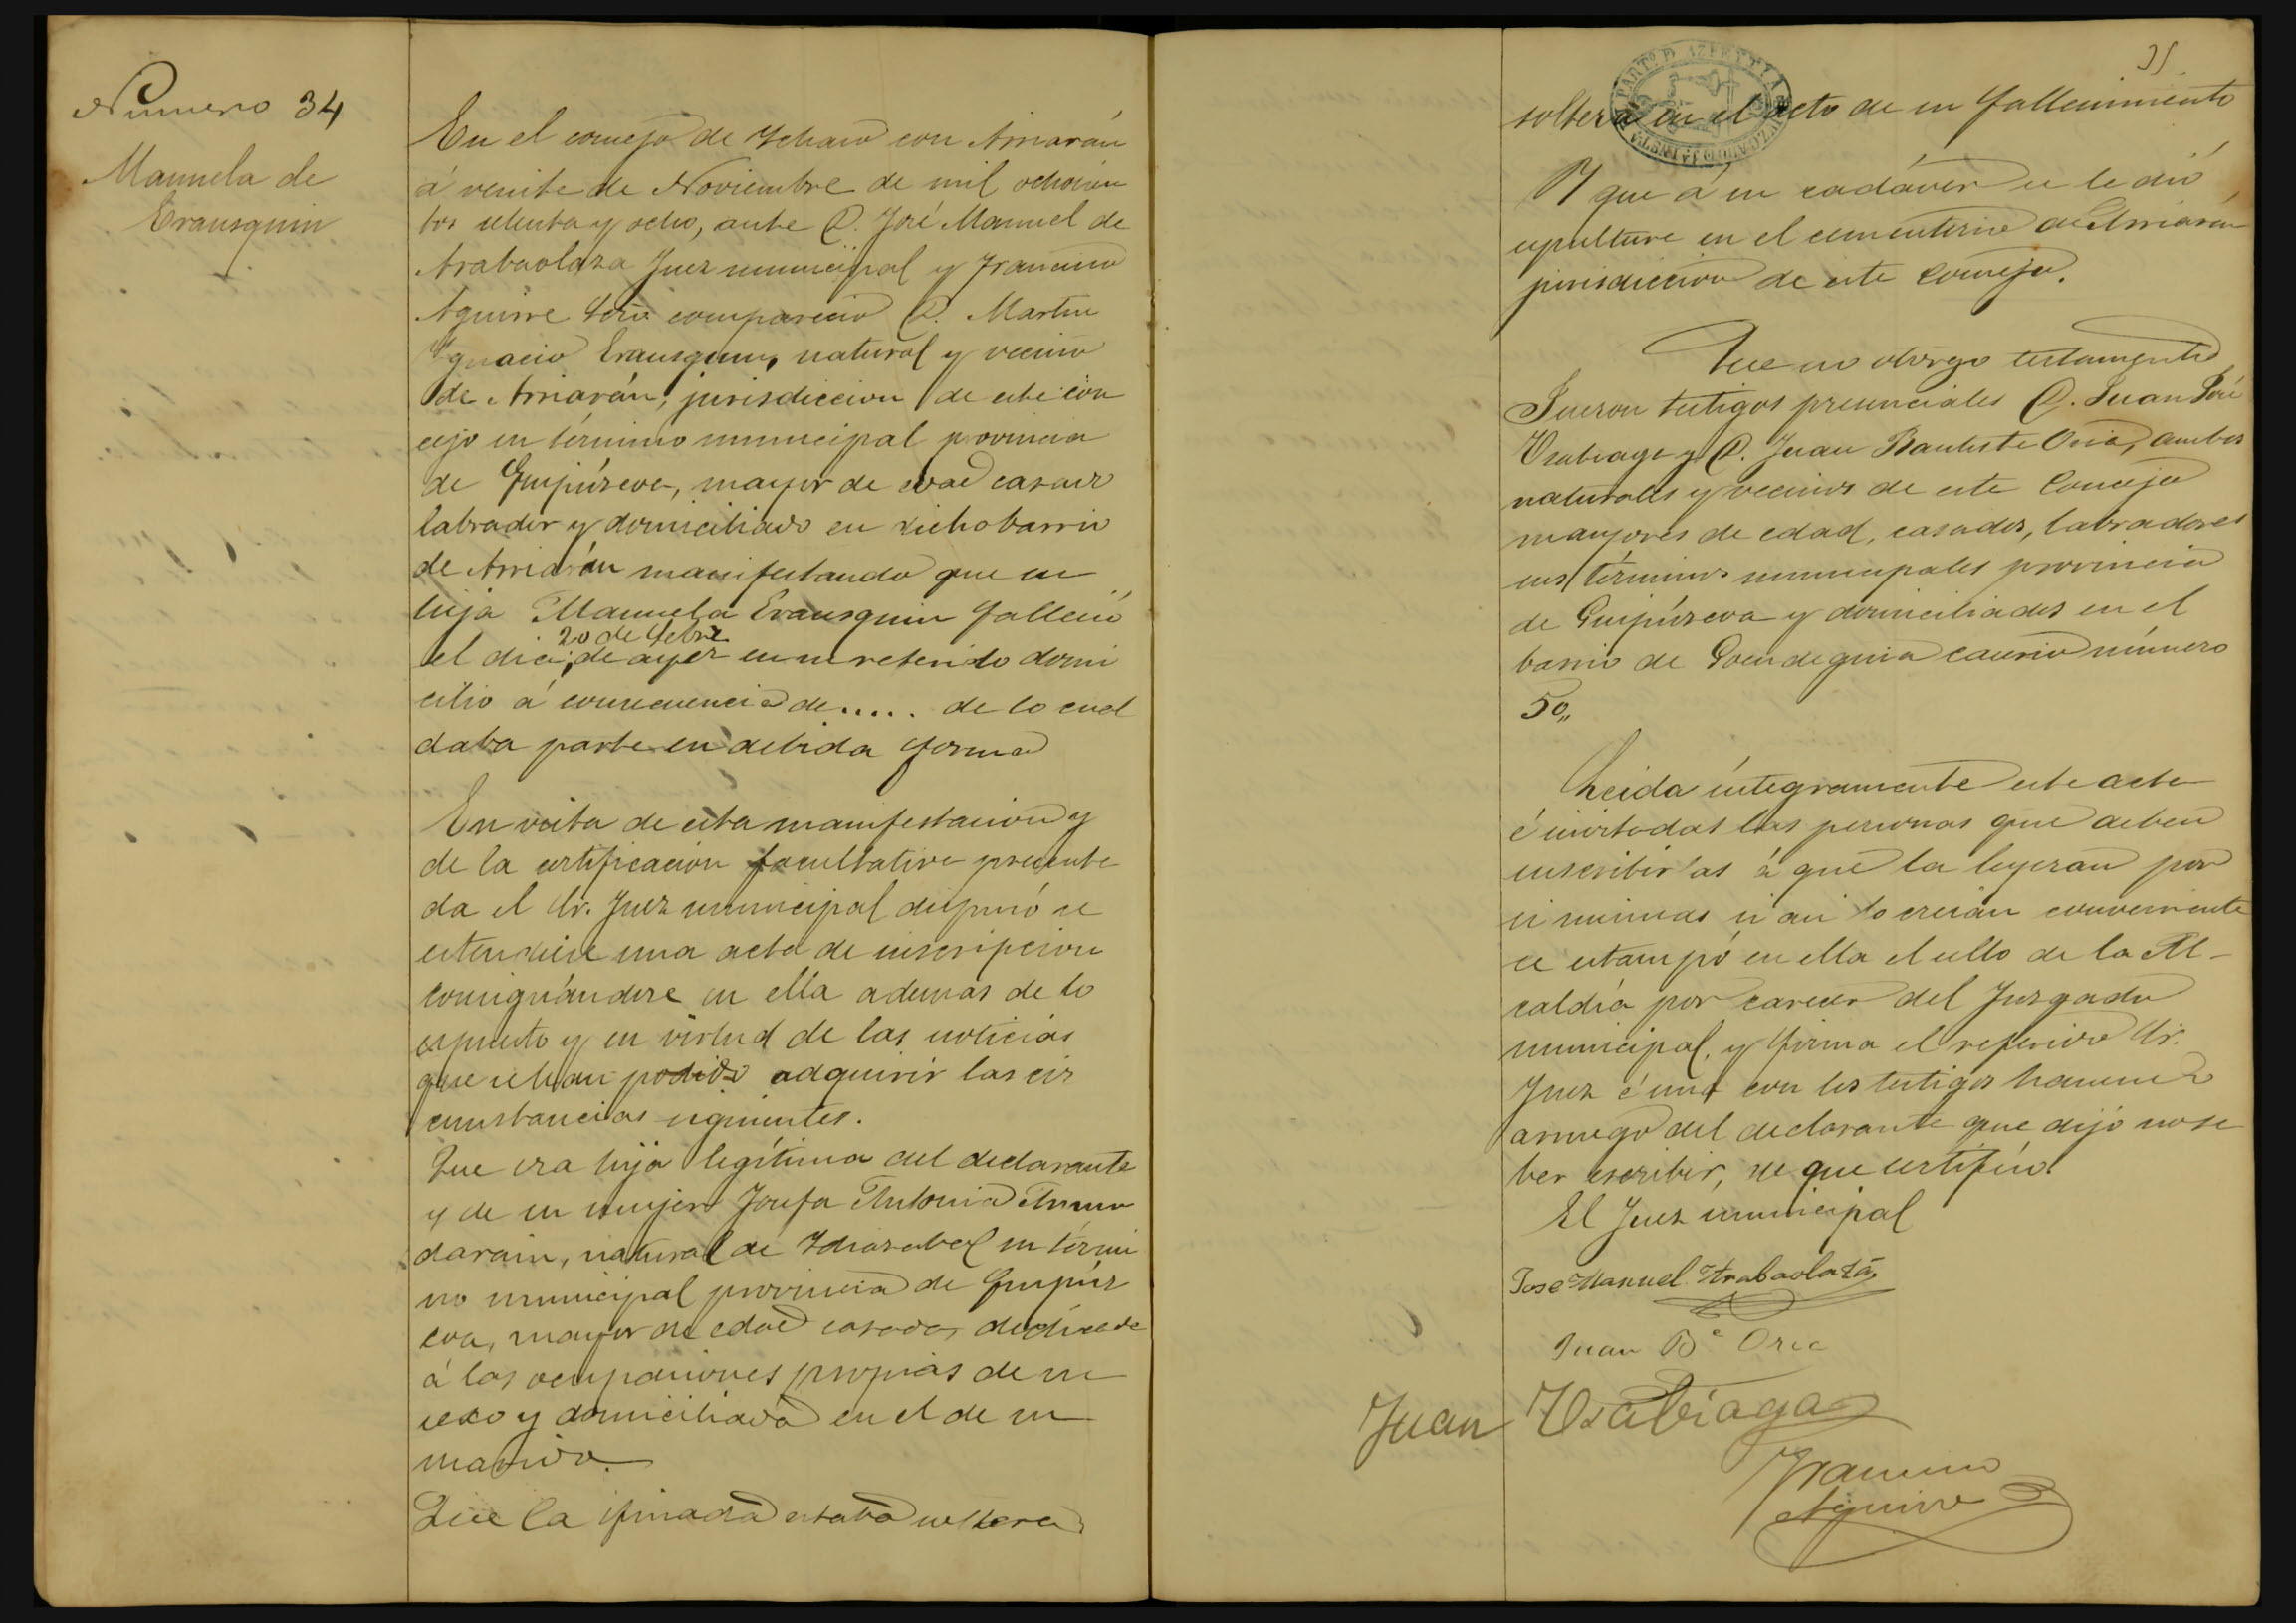 Numero 34
Manuela de
Erausquin
En el concejo de Ichaso con Arriarán
á veinte de Noviembre de mil ochocien
tos setenta y ocho, ante D. José Manuel de
Arabaolaza Juez municipal y Francisco
Aguirre Srio compareció D. Martin
Ygnacio Erausquin, natural y vecino
de Arriarán, jurisdiccion de este con
cejo su término municipal provincia
de Guipúzcoa, mayor de edad casado
labrador y domiciliado en dicho barrio
de Arriarán manifestando que su
hija Manuela Erausquin falleció
20 de Febro
el dia de ayer en su referido domi
cilio á consecuencia de..... de lo cual
daba parte en debida forma
En vista de esta manifestacion y
de la certificacion facultativa presenta
da el Sr. Juez municipal dispusó se
estendiese una acta de inscripcion
consignándose en ella ademas de lo
espuesto y en virtud de las noticias
que se han podido adquirir las cir
cunstancias siguientes.
Que era hija legítima del declarante
y de su mujer Josefa Antonia
darain, natural de Idiazabal su térmi
no municipal provincia de Guipúz
coa, mayor de edad casada, dedicada
á las ocupaciones propias de su
sexo y domiciliada en el de su
marido.
Que la finada estaba soltera
35
PARTº D AZPEITIA
soltera en el acto de su fallecimiento
Y que á su cadáver se le dió
sepultura en el cementerio de Arriarán
jurisdiccion de este concejo.
Que no otorgo testamento
Fueron testigos presenciales D. Juan José
Usabiaga y D. Juan Bautista Oria, ambos
naturales y vecinos de este Concejo
mayores de edad, casados, labradores
sus términos municipales provincia
de Guipúzcoa y domiciliados en el
barrio de caserio número
50,,
Leida íntegramente este acta
é invitadas las personas que deben
suscribirlas á que la leyeran por
si mismas si asi lo creian conveniente
se estampó en ella el sello de la Al-
caldía por carecer del Juzgado
municipal, y firma el referido Sr.
Juez é una con los testigos
arruego del declarante que dijo no sa
ber escribir, de que certifico.
El Juez municipal
Jose Manuel Arabaolaza
Juan Bª Oria
Juan Usabiaga
Francisco
Aguirre